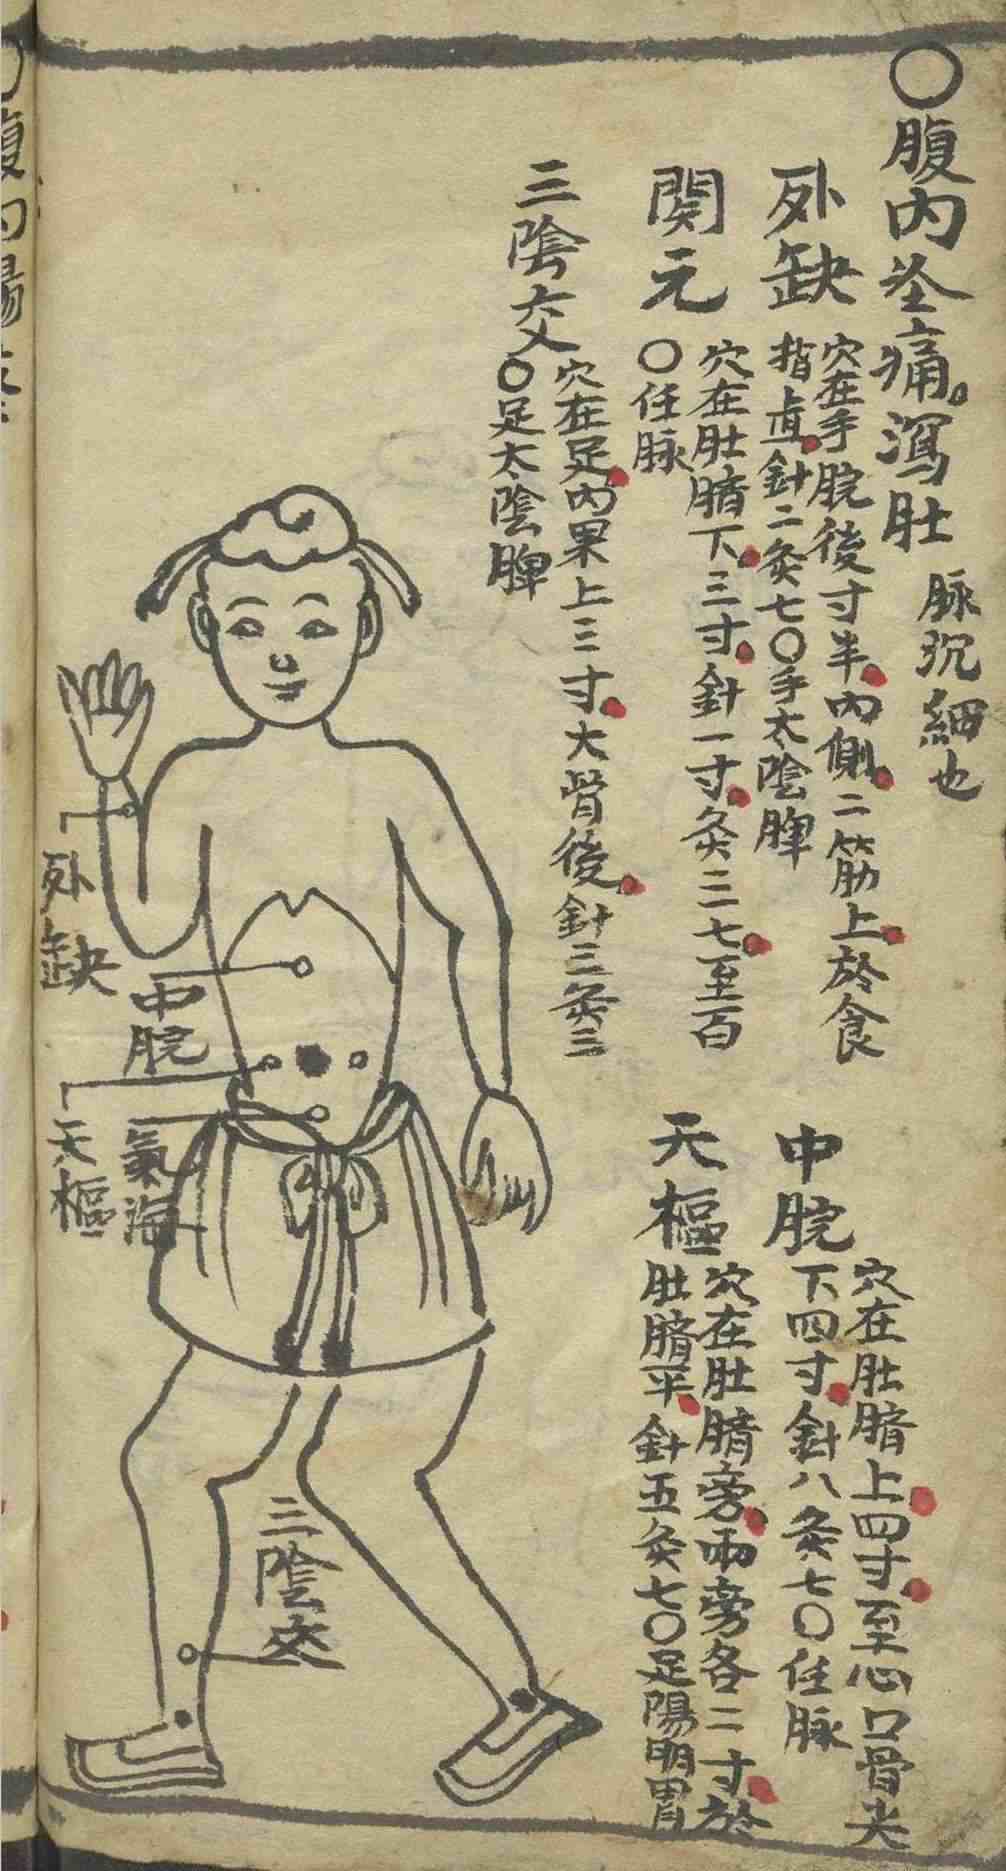 〇腹內全痛。瀉肚
脉沉細也
列缺
穴在手腕後寸半內側二筋上於食
指直針二灸七〇手太陰脾
関元
穴在肚臍下三寸針一寸灸二七至百
〇任脉
三陰交
穴在足內果上三寸大骨後針三灸三
〇足太陰脾
中脘
穴在肚臍上四寸至心口骨夫
下四寸針八灸七〇任脉
天樞
穴在肚臍旁兩旁各二寸於
肚臍平針五灸七〇足陽明胃
列缺
中脘
天樞
氣海
三陰交